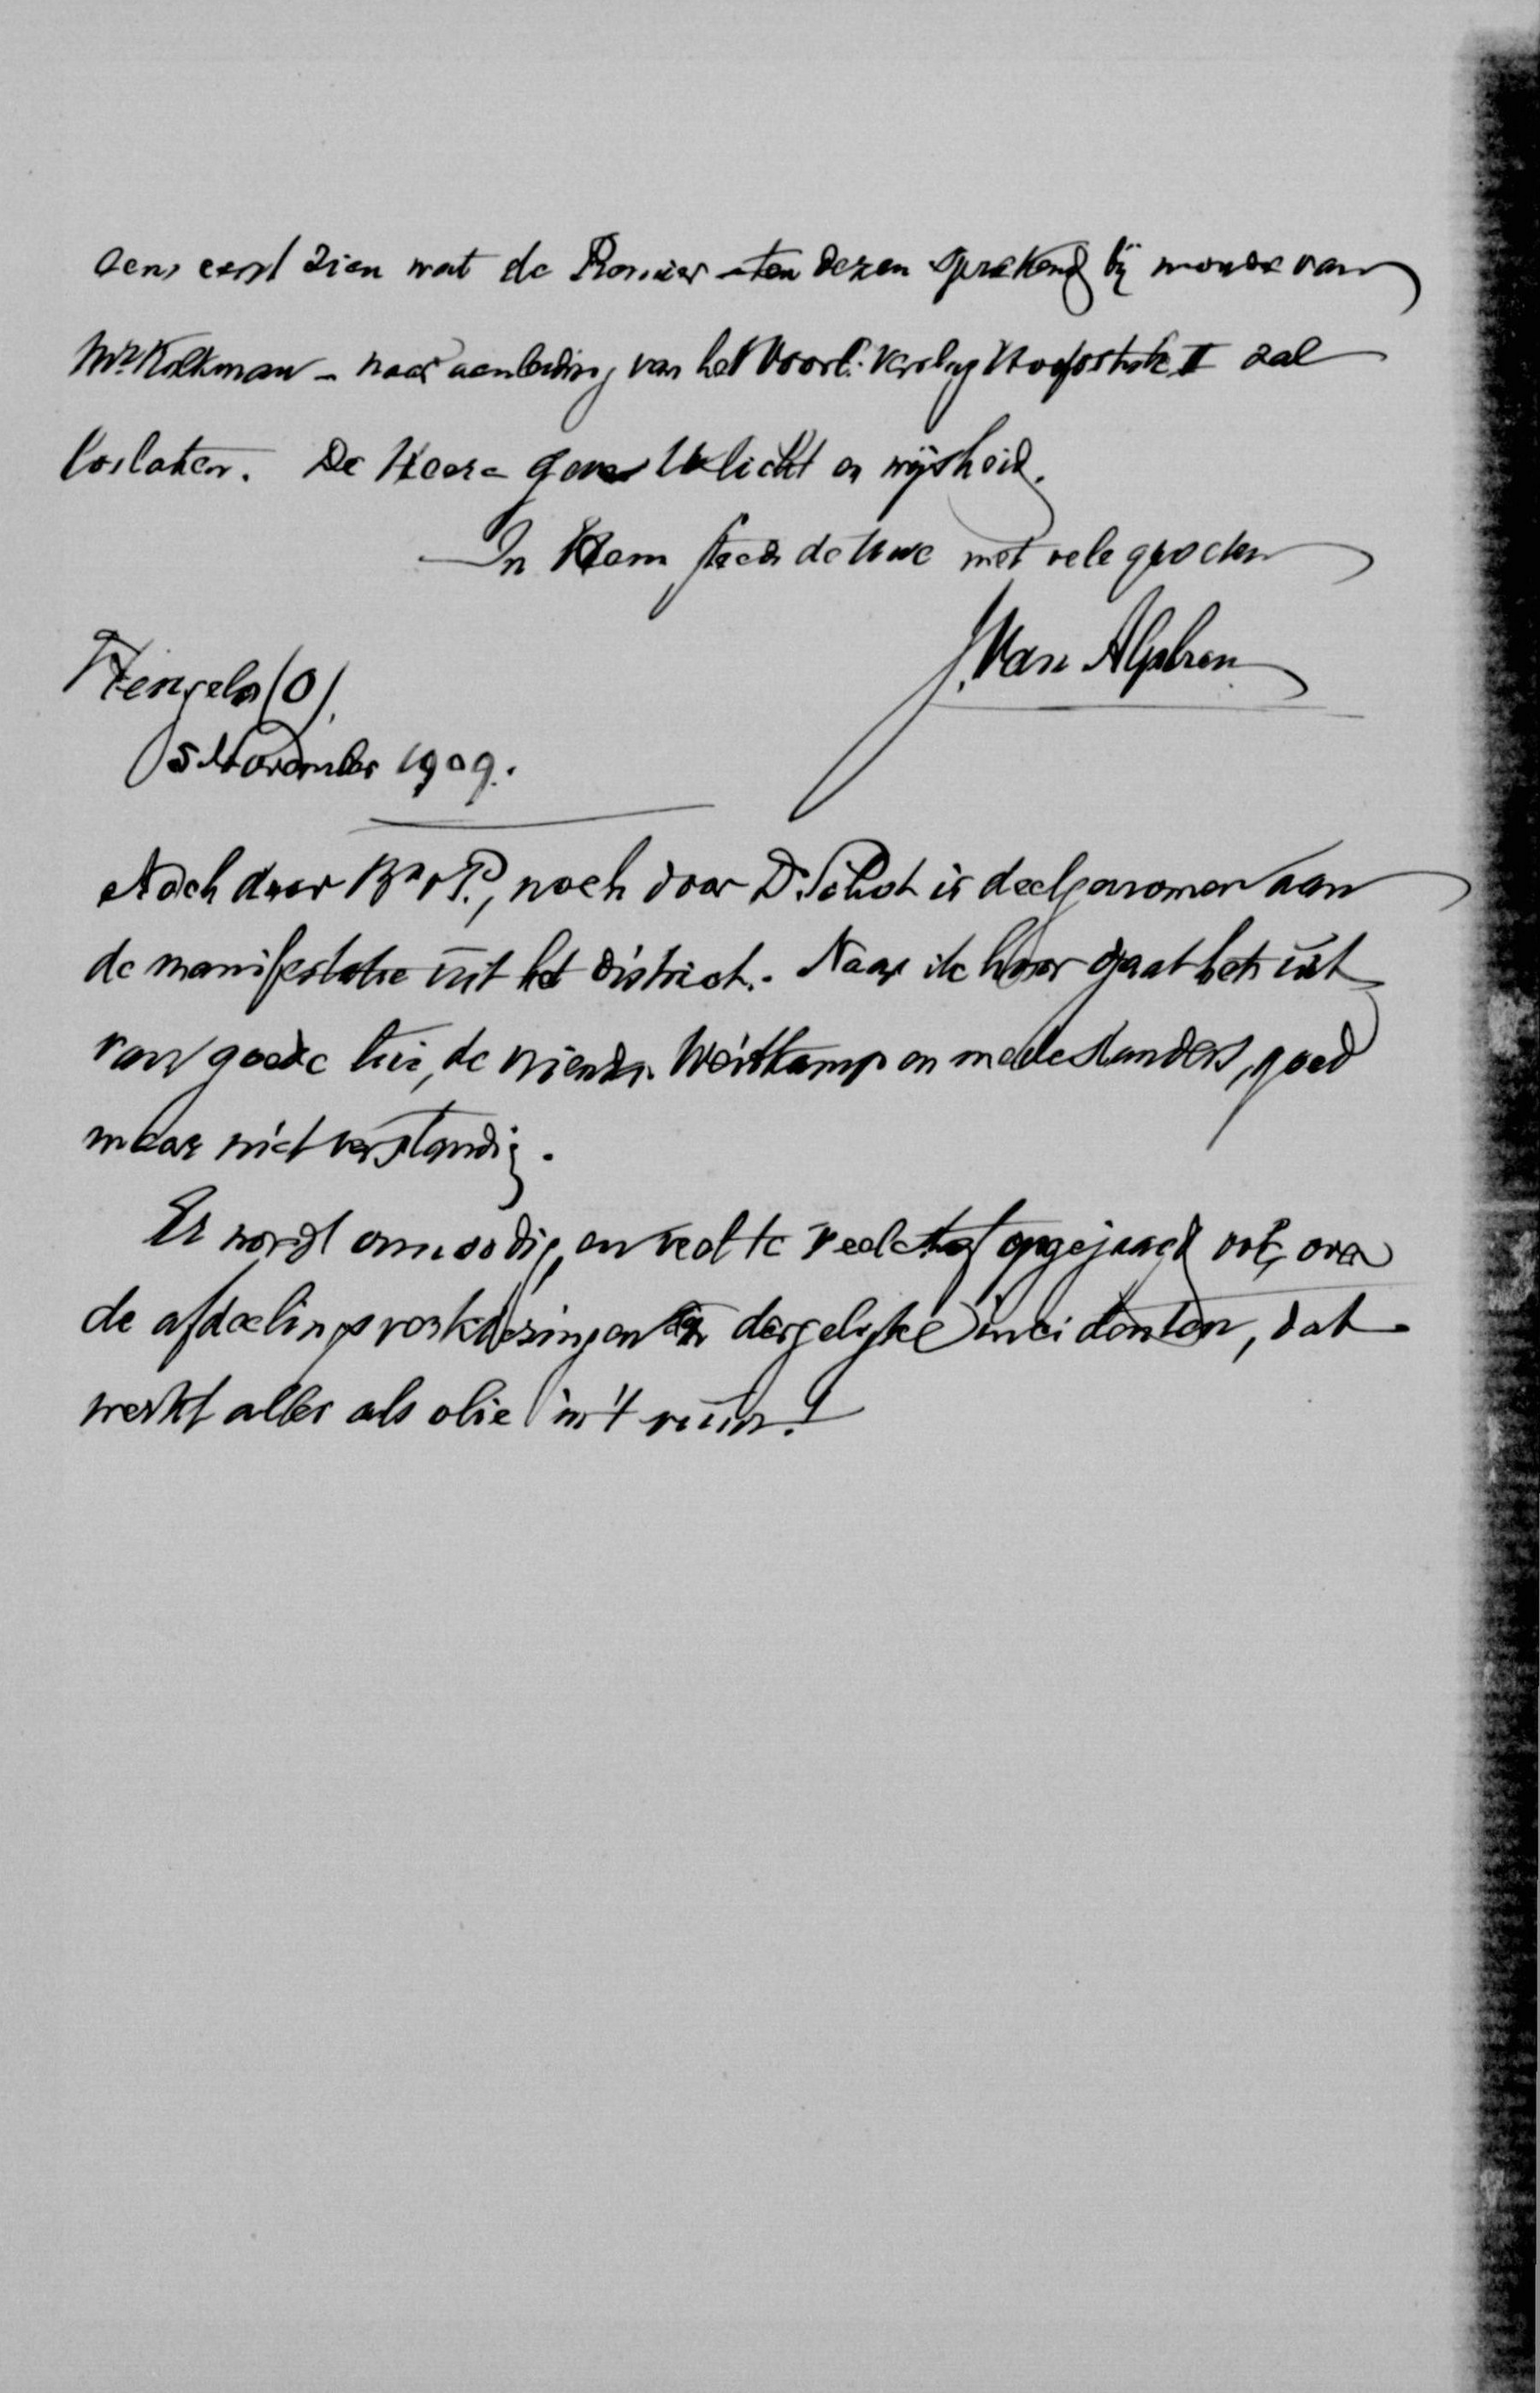 eens eerst zien wat de Premier - ten dezen sprekend bij monde van
Mr. Kolkman - naar aanleiding van het Voorl: Verslag Hoofdstuk II zal
loslaten. De Heere geve U licht en wijsheid.
In Hem steeds de Uwe met vele groeten
J. Van Alphen
Hengelo (O).
5 November 1909.
Noch door Br v P., noch door Ds. Schot is deelgenomen aan
de manifestatie uit het district. Naar ik hoor gaat het uit
van goede lui, de vrienden Weitkamp en medestanders, goed
maar niet verstandig.
Er wordt onnoodig, en veel te veel stof opgejaagd ook over
de afdeelingsverkiezingen en dergelijke incidenten, dat
werkt alles als olie in 't vuur!